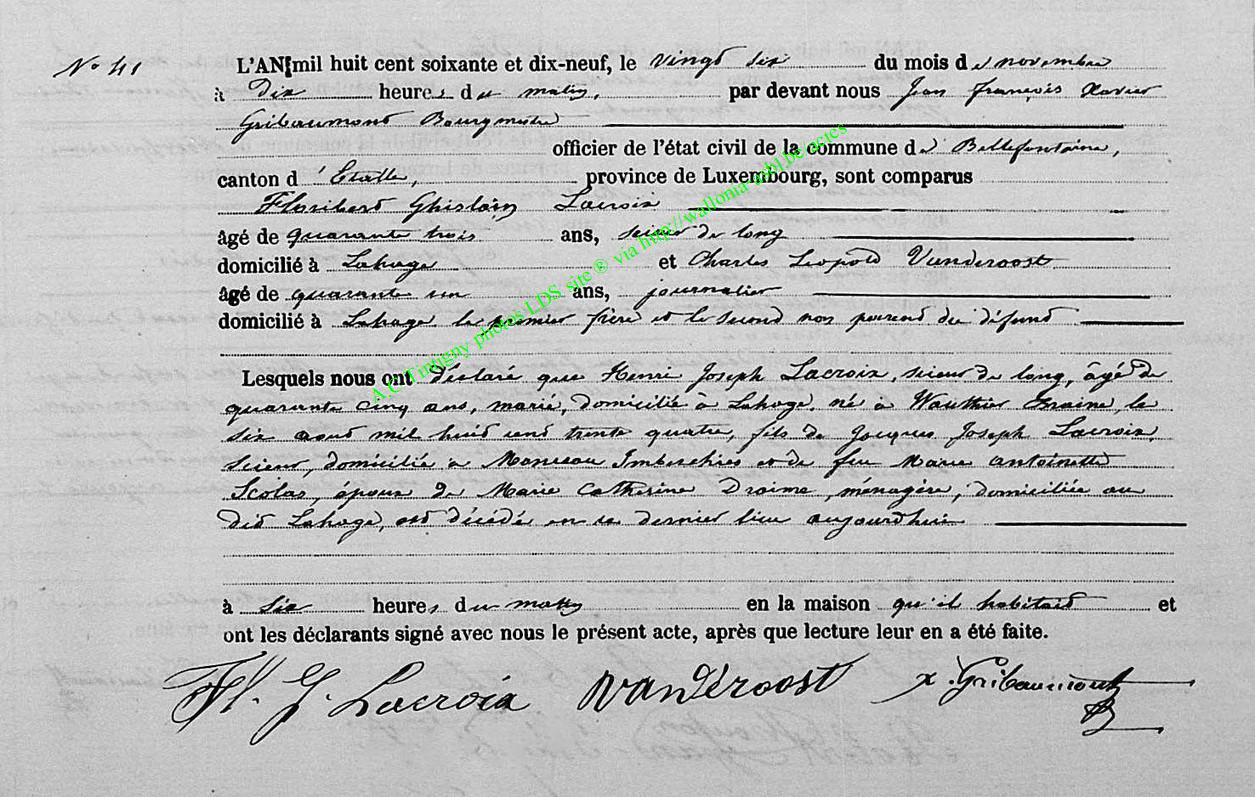 N° 41
L'AN mil huit cent soixante et dix-neuf, le vingt six du mois de novembre
à dix heures du matin, par devant nous Jean François Xavier
Gribaumont Bourgmestre
officier de l'état civil de la commune de Bellefontaine,
canton d'Étalle, province de Luxembourg, sont comparus
Floribert Ghislain Lacroix
âgé de quarante trois ans, scieur de long
domicilié à Lahage et Charles Leopold Vanderoost
âgé de quarante un ans, journalier
domicilié à Lahage le premier frère et le second non parent du défunt
Lesquels nous ont déclaré que Henri Joseph Lacroix, scieur de long, âgé de
quarante cinq ans, marié, domicilié à Lahage, né à Wauthier Braine, le
six aout mil huit cent trente quatre, fils de Jacques Joseph Lacroix,
scieur, domicilié à Monceau Imbrechies et de feu Marie Antoinette
Scolas, époux de Marie Catherine Draime, ménagère, domiciliée au
dit Lahage, est décédé en ce dernier lieu aujourd'hui
à six heures du matin en la maison qu'il habitait et
ont les déclarants signé avec nous le présent acte, après que lecture leur en a été faite.
Fl. G. Lacroix Vanderoost x. Gribaumont
A.C. Tintigny photos LDS site ® via http://wallonia-asbl.be/actes